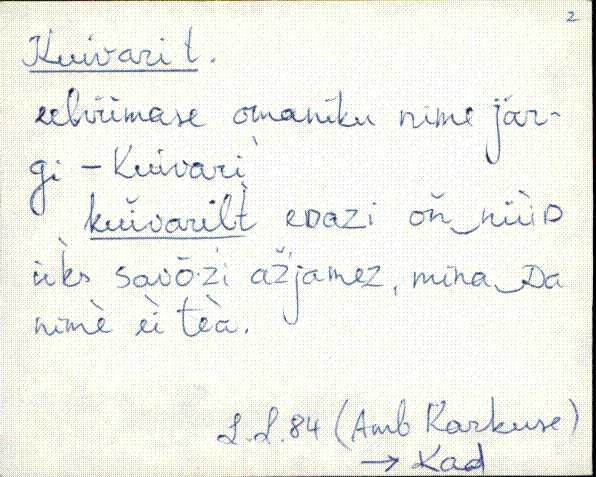 2
Kuivari t.
eelviimase omaniku nime jär-
gi – Kuivari
kuìvarilt̀ eDazi oň‿nüìD
ǜks savō·źi ažjamez, mina‿Da
nimè eì teà.
L.L. 84 (Amb Karkuse)
→ Kad